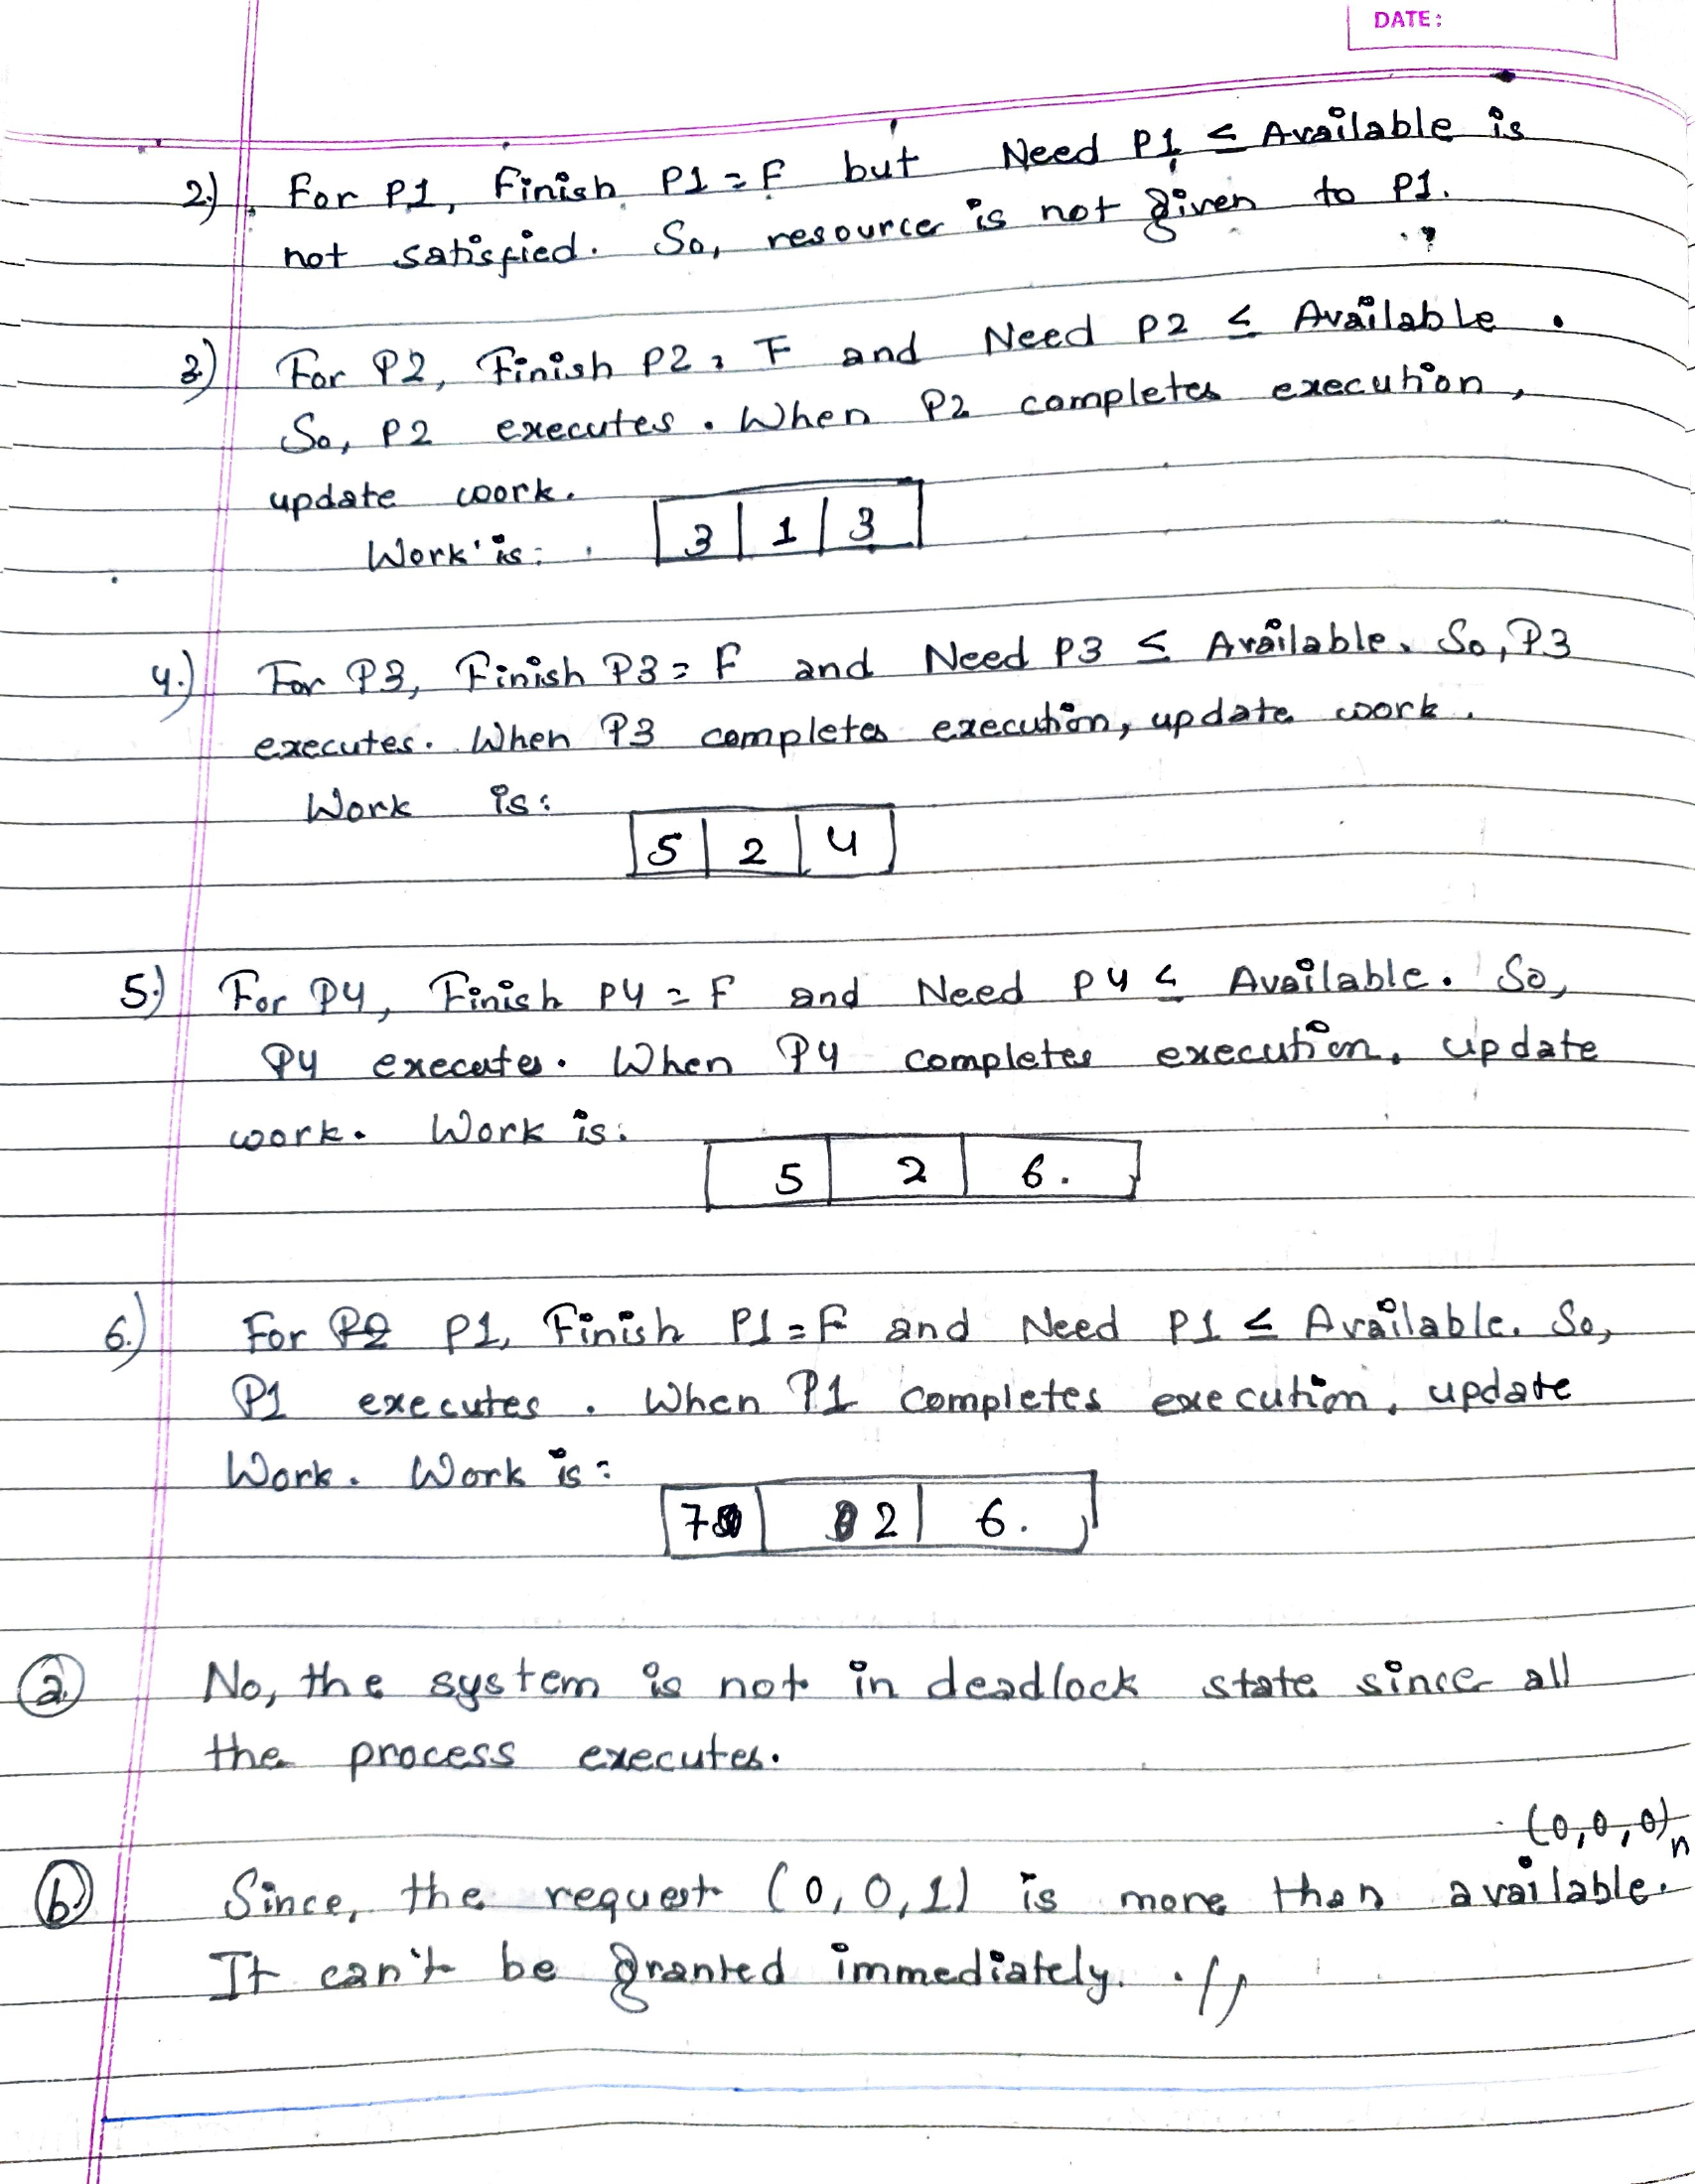 DATE:
2.) For P1, Finish P1 = F but Need P1 ≤ Available is
not satisfied. So, resource is not given to P1.
3) For P2, Finish P2 = F and Need P2 ≤ Available.
So, P2 executes. When P2 completes execution,
update work.
Work is: 3 1 3
4.) For P3, Finish P3 = F and Need P3 ≤ Available. So, P3
executes. When P3 completes execution, update work.
Work is:
5 2 4
5.) For P4, Finish P4 = F and Need P4 ≤ Available. So,
P4 executes. When P4 completes execution, update
work. Work is:
5 2 6.
6.) For P1, Finish P1 = F and Need P1 ≤ Available. So,
P1 executes. When P1 completes execution, update
Work. Work is:
7 2 6.
a. No, the system is not in deadlock state since all
the process executes.
(0,0,0)
b. Since, the request (0,0,1) is more than available.
It can't be granted immediately.